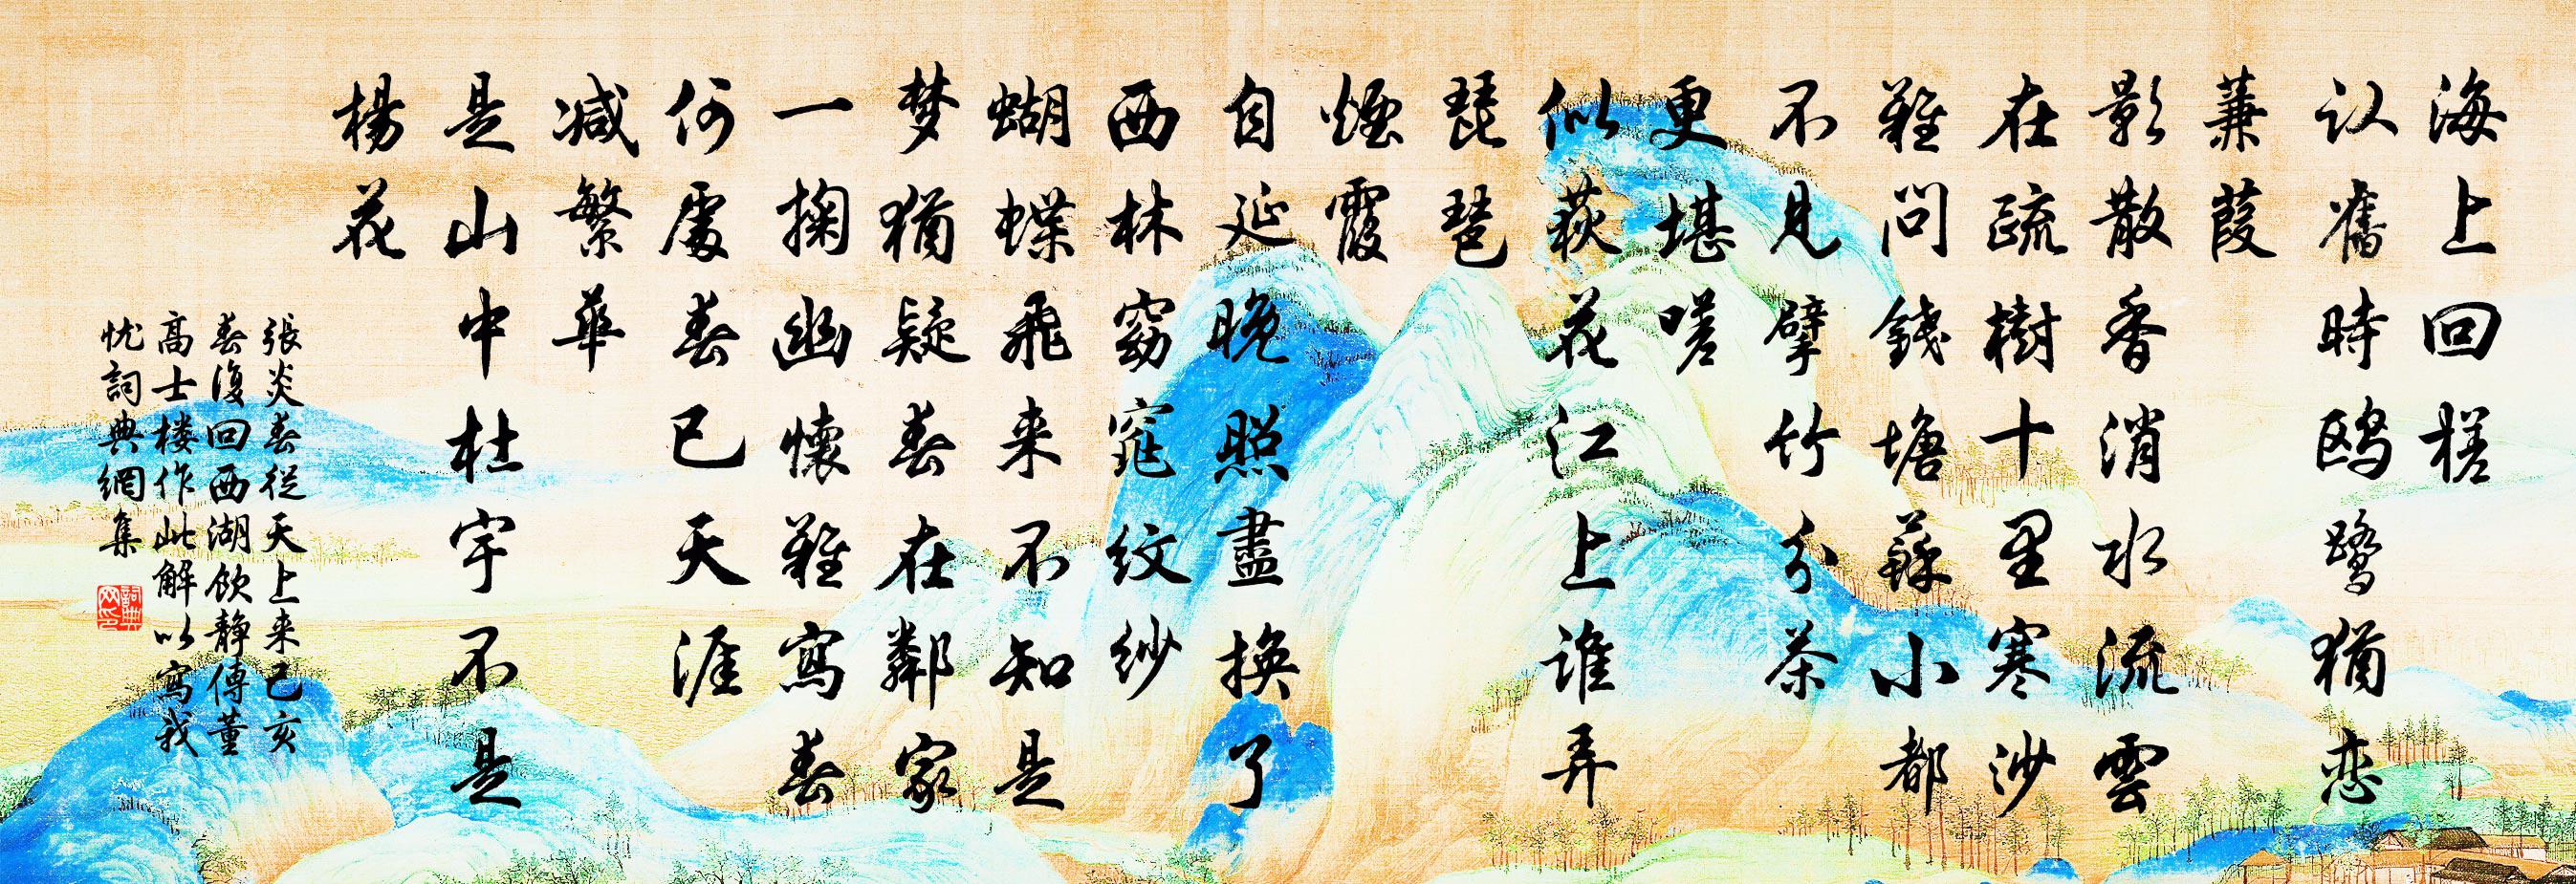 海上回槎
认舊時鸥鹭猶恋
蒹葭
影散香消水流雲
在疏樹十里寒沙
難問錢塘蘇小都
不見擘竹分茶
更堪嗟
似荻花江上谁弄
琵琶
煙霞
自延晚照盡换了
西林窈窕纹纱
蝴蝶飛来不知是
梦猶疑春在鄰家
一掬幽懷難寫春
何處春已天涯
减繁華
是山中杜宇不是
楊花
張炎春從天上来己亥
春復回西湖飲静傳董
高士楼作此解以寫我
忧詞典網集
詞典网印